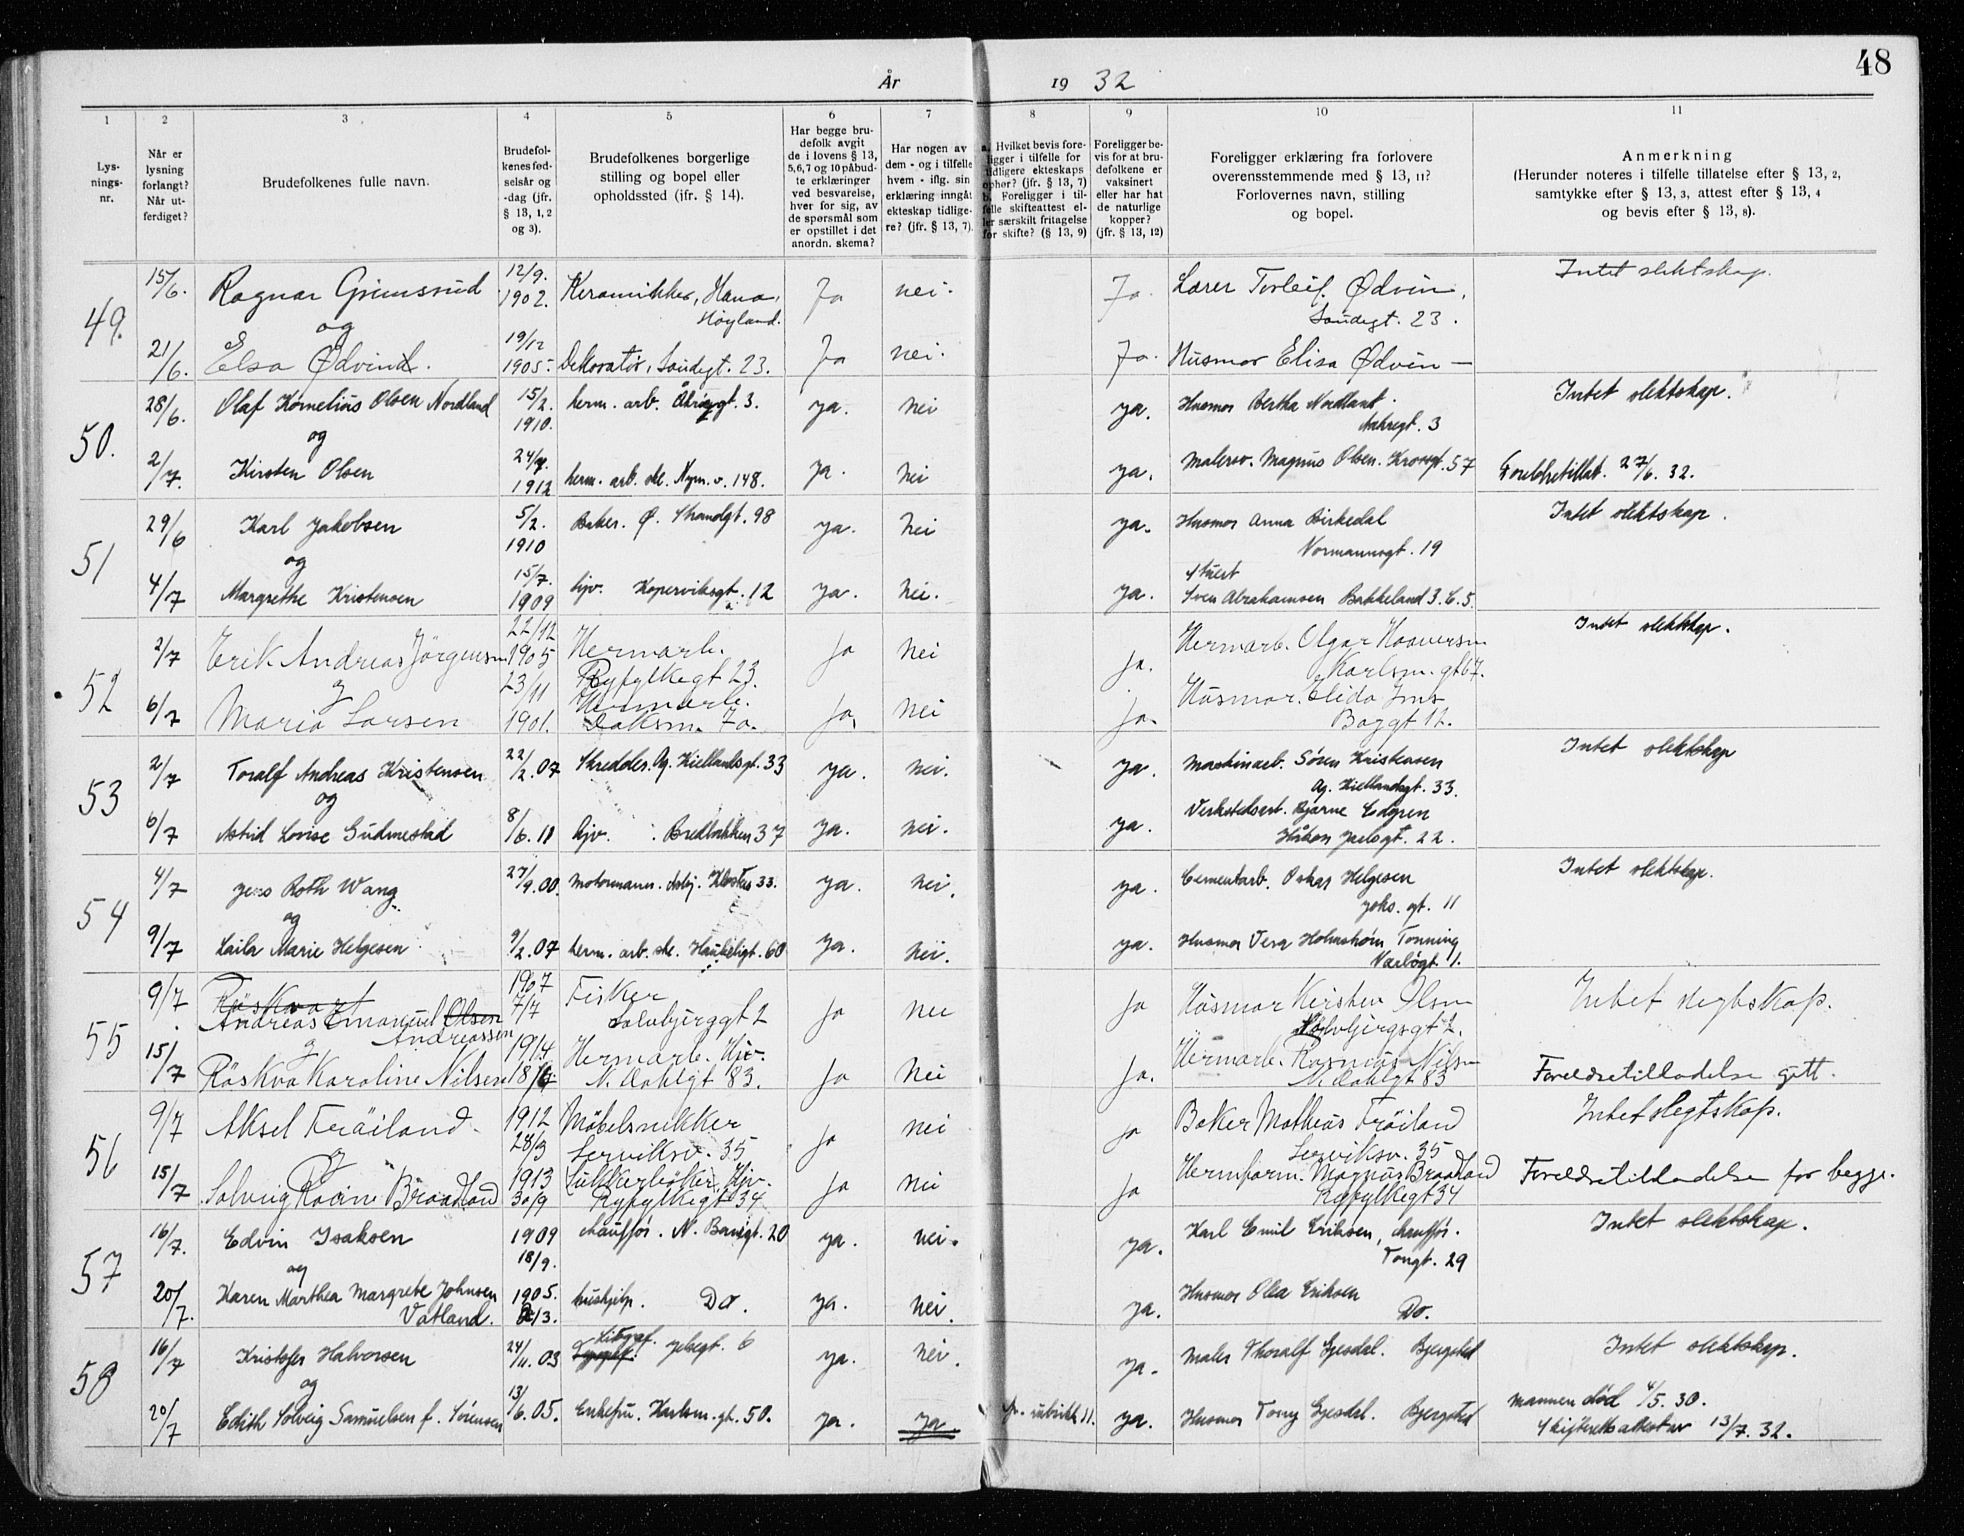 48
År 1932
1 2 3 4 5 6 7 8 9 10 11
Lysnings-nr.
Når er lysning forlangt? Når utferdiget?
Brudefolkenes fulle navn.
Brudefolkenes fødselsår og -dag (jfr. § 13, 1, 2 og 3).
Brudefolkenes borgerlige stilling og bopel eller opholdssted (jfr. § 14).
Har begge brudefolk avgit de i lovens § 13, 5,6,7 og 10 påbudte erklæringer ved besvarelse, hver for sig, av de spørsmål som er opstillet i det anordn. skema?
Har nogen av dem - og i tilfelle hvem - iflg. sin erklæring inngått ekteskap tidligere? (jfr. § 13, 7).
a. Hvilket bevis foreligger i tilfelle for tidligere ekteskaps ophør? (jfr. § 13, 7) b. Foreligger i tilfelle skifteattest eller særskilt fritagelse for skifte? (§ 13, 9)
Foreligger bevis for at brudefolkene er vaksinert eller har hat de naturlige kopper? (jfr. § 13, 12)
Foreligger erklæring fra forlovere overensstemmende med § 13, 11? Forlovernes navn, stilling og bopel.
Anmerkning (Herunder noteres i tilfelle tillatelse efter § 13, 2, samtykke efter § 13, 3, attest efter § 13, 4 og bevis efter § 13, 8).
49. 15/6. Ragnar Grimsrud 12/9. 1902. Keramikker, Hana, Høyland. Ja nei. Ja. Lærer Torleif Ødvin, Saudegt. 23. Intet slektskap.
og
21/6. Elsa Ødvin. 19/12 1905. Dekoratør, Saudegt. 23. Ja nei. Ja. Husmor Elisa Ødvin —
50. 28/6. Olaf Kornelius Olsen Nordland 15/2. 1910. herm. arb. Åkragt. 3. ya. nei ya. Husmor Bertha Nordland. Aakregt. 3 Intet slektskap.
og
2/7. Kirsten Olsen 1912 herm. arb. ske. Nym. v. 148. ya. nei ya. Malersv. Magnus Olsen. 57 Foreldretillat. 27/6. 32.
51 29/6 Karl Jakobsen 5/2. 1910 Baker. Ø. Strandgt. 98 ya. nei ya. Husmor Anna Birkedal Normannsgt. 19 Intet slektskap.
og
4/7 Margrethe Kristensen 15/7. 1909 hjv. Koperviksgt. 12 ya. nei. ya. Stuert Sven Abrahamsen Bakkeland 3. 6. 5.
52 2/7 Erik Andreas Jörgensen 22/12 1905 Hermarb. Ryfylkegt 23. ja nei ja. Hermarb. Olgar Karlsm. gt 67. Intet slektskap.
g
6/7 Maria Larsen 23/11 1901. Hermarb. 7a. ja, nei ja. Husmor. Elida Ims Baggt 12.
53 2/7 Toralf Andreas Kristensen 22/2. 07 Skredder. Ag. Kiellandsgt. 33 ya. nei. ya. Maskinarb. Sören Kristensen Ag. Kiellandsgt. 33. Intet slektskap
og
6/7 Astrid Lovise Gudmestad 8/6. 11 hjv. Bredbakken 37 ya. nei. ya. Verkstedsarb. Bjarne Edgren Håkon Jarlsgt. 22.
54 4/7 Jens Roth Wang 27/9. 00. Motormann. Klostus 33. ya. nei. ya. Cementarb. Oskar Helgesen Joks. gt. 11 Intet slektskap.
og
9/7 Laila Marie Helgesen 9/2. 07 herm. arb. ske. Haukeligt. 60 ya. nei. ya. Husmor Vera Tonning 1.
55 9/7 Röskva Andreas Emanuel Olsen Andreassen 1907 7/7 Fisker Solvbjerggt 2 ja nei ja Husmor Kirsten Olsen Solvbjergsgt 2. Intet slegtskap.
g
15/7 Röskva Karoline Nilsen 1914 Hermarb. Hjv. N. Dahlgt 83. ja nei ja. Hermarb. Rasmus Nilsen N. Dahlgt 83 Foreldretilladelse gitt.
56 9/7 Aksel Fröiland. 1912 28/3 Möbelsnikker Lerviksv. 35 ja nei ja Baker Mathias Fröiland Lerviksv. 35 Intet slegtskap.
g
15/7 Solveig Braadland 1913 30/9 Hjv. Ryfylkegt 34 ja nei ja Hermform. Magnus Braadland Ryfylkegt 34 Foreldretilladelse for begge.
57 16/7. Edvin Isaksen 1909 18/9. chauffør. N. 20 ya. nei. ya. Karl Emil Eriksen, chauffør. Tongt. 29 Intet slektskap.
og
20/7. Karen Marthea Margrete Johnsen Vatland. 1905. hushjelp. Do. ya. nei. ya. Husmor Olea Eriksen Do.
58 16/7 Kristofer Halvorsen 24/11. 03 Litograf. Jelsegt. 6 ya. nei. ya. Maler Thoralf Gjesdal. Bjergsted Intet slektskap.
og
20/7 Edith Solveig Samuelsen f. Sörensen 13/6. 05. Enkefru. Karlsm. gt. 50. ya. ya. rubrikk 11. ya. Husmor Tony Gjesdal. Bjergsted Mannen død 4/5. 30. Skifterettsattest av 13/7. 32.